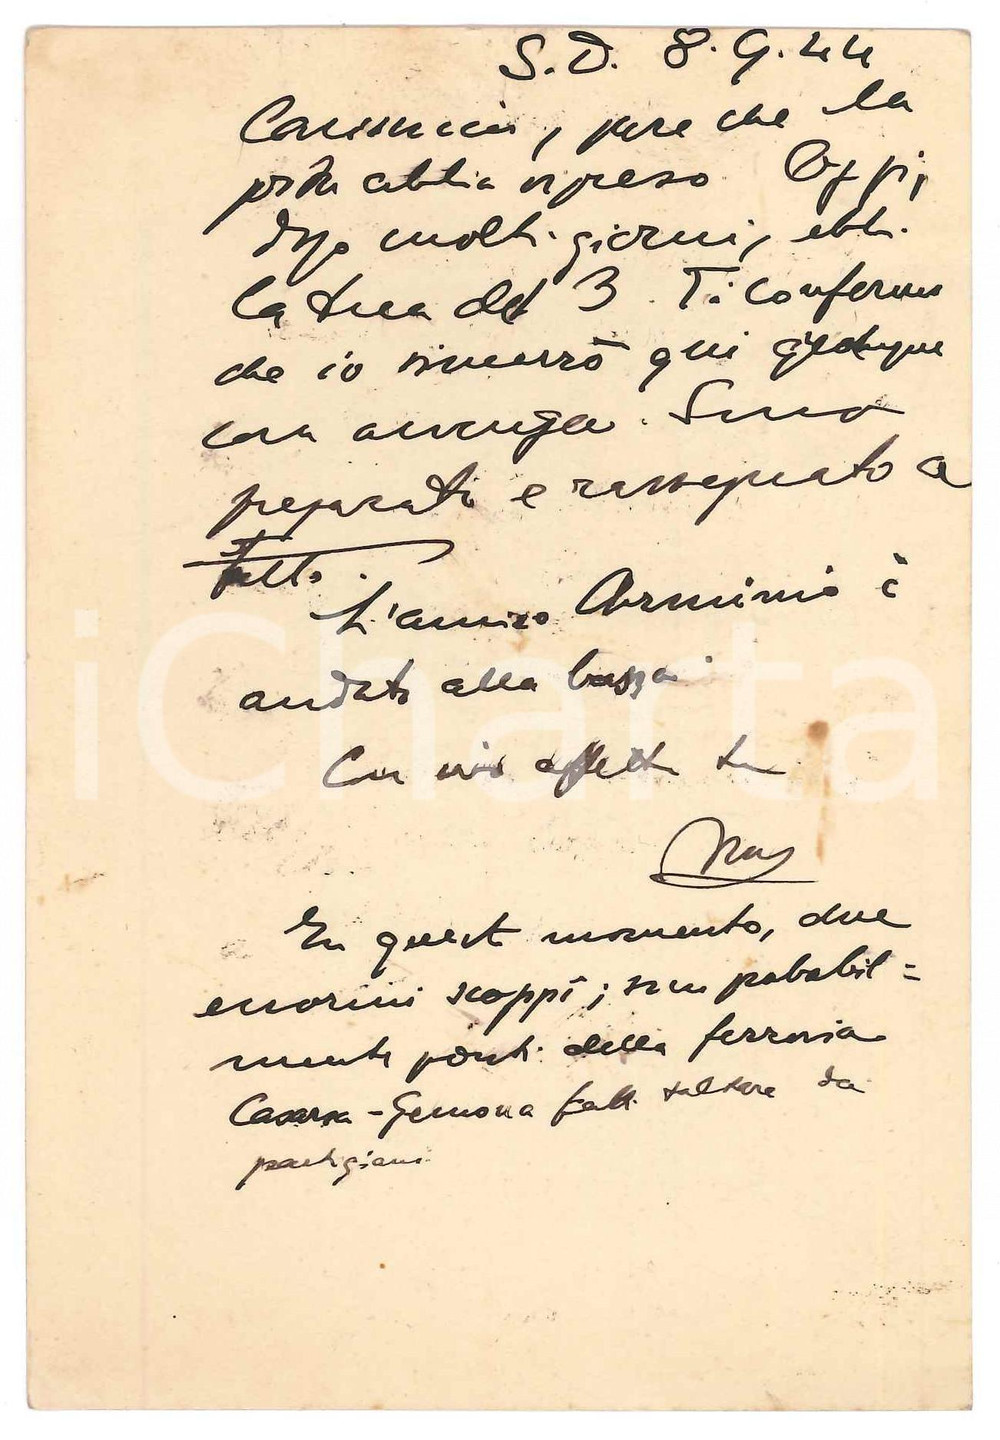 S.D. 8.9.44
Carissimi, pare che la
posta abbia ripreso. Oggi,
dopo molti giorni, ebbi
la tua del 3. Ti confermo
che io rimarrò qui qualunque
cosa avvenga. Sono
preparato e rassegnato a
tutto.
L'amico Arminio è
andato alla bassa
Con vivo affetto tuo
In questo momento, due
enormi scoppi; son probabil=
mente ponti della ferrovia
Casarsa-Gemona fatti saltare da
partigiani
iCharta